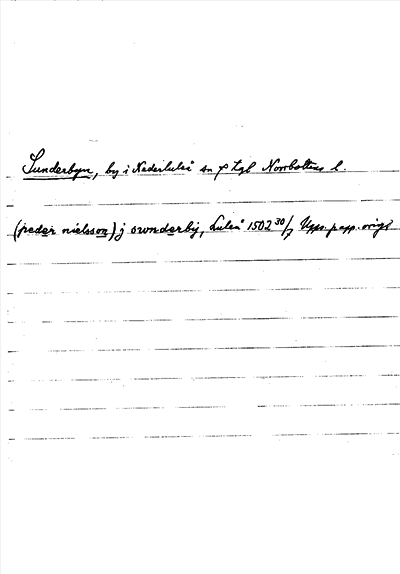 Sunderbyn, by i Nederluleå sn o tgl Norrbottens l.
(peder nielsson) j swnderby, Luleå 1502 30/7 Upps. papp. orig.